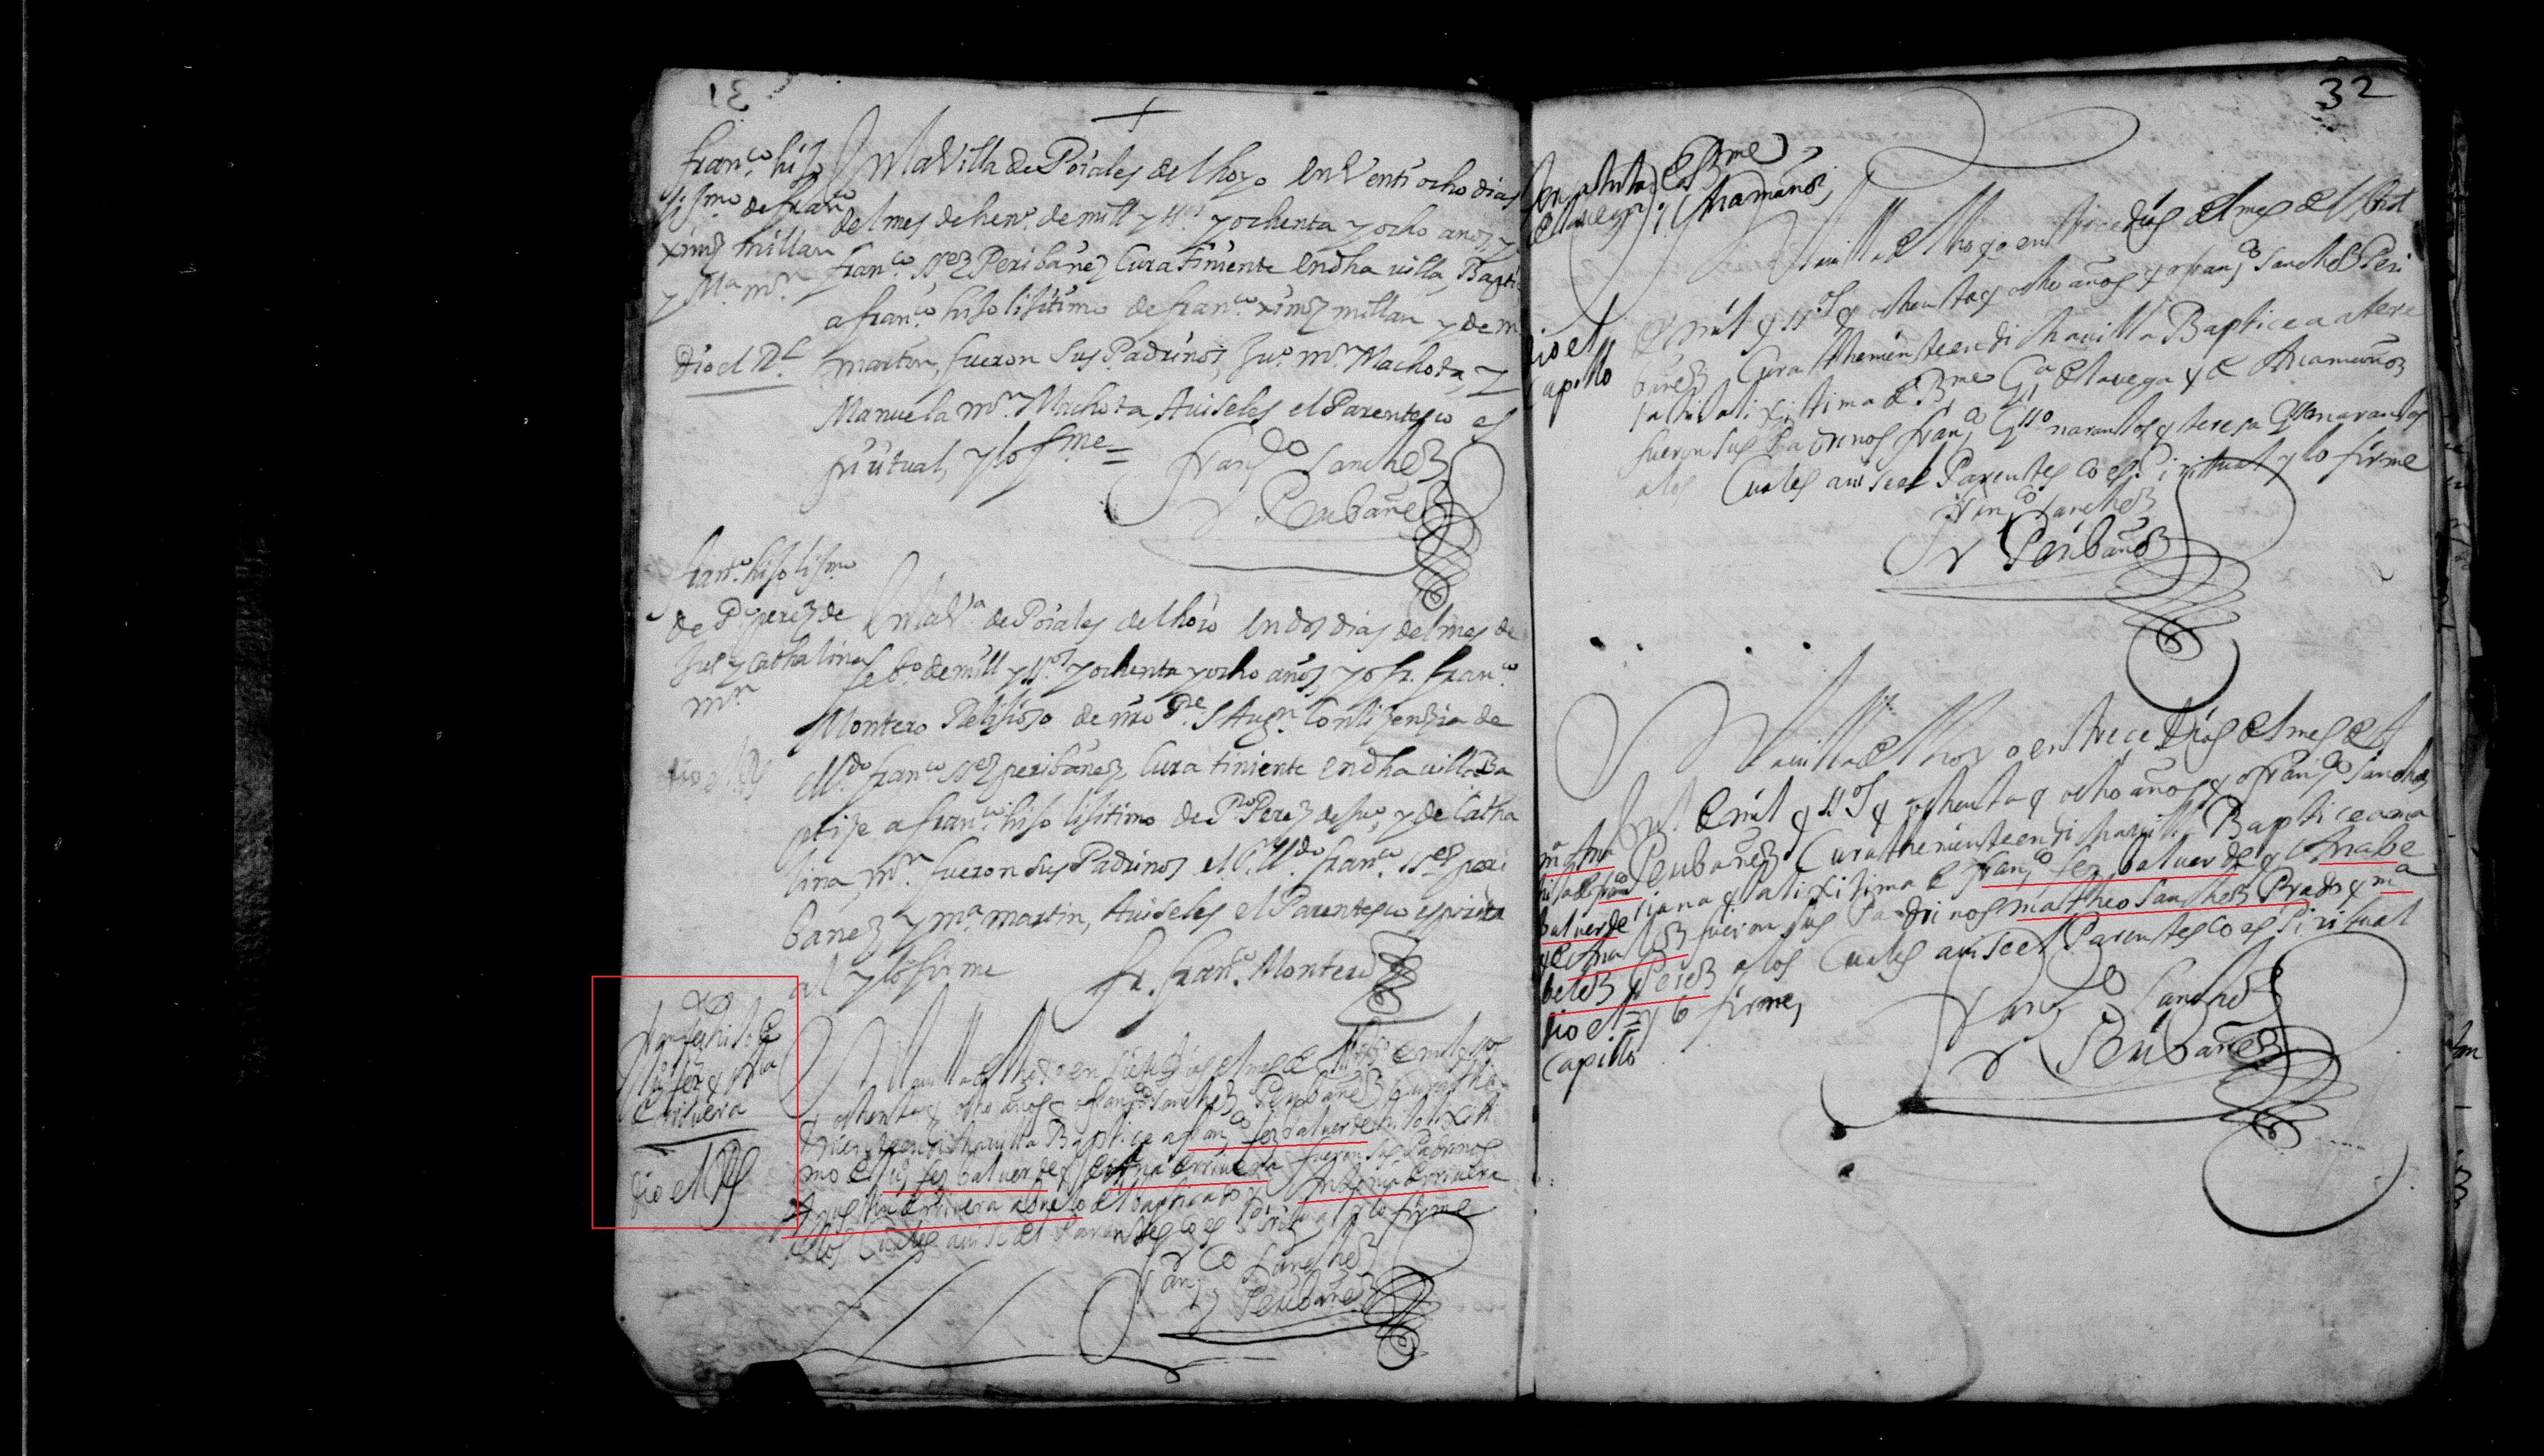 31
franco. hijo
lijmo de franco
ximz millan
y Ma. mrn
dio el Rl.
En la Villa de Poiales del hoyo en Venti ocho dias
del mes de heno. de mill y ssos y ochenta y ocho años, yo
franco. ssez Peribañez Cura tiniente en dha villa, Bapti
a franco. hijo lijitimo de franco. ximz millan y de m
martin, fueron sus Padrinos, Juo. mrn Machota, y
Manuela mrn Machota, Auiseles el Parentesco es
piritual, y lo fme =
Franco Sanchez
Peribañez
franco. hijo lijmo
de Po perez de
Juo y Cathalina
mrn
En la Va. de Poiales del hoio en dos dias del mes de
febo. de mill y ssos y ochenta y ocho años, yo fr. franco.
Montero Relijioso de nro Pe. S Augn. Con lizenzia de
el Ldo. franco ssez peribañez Cura tiniente en dha villa Ba
ptize a franco. hijo lijitimo de Po Perez de Juo. y de Catha
lina mrn. fueron sus Padrinos el Ldo. franco. ssez peri
bañez y ma. martin, Auiseles el Parentesco espiritu
al y lo firme
fr. franco. Montero
franco hijo de
Luis fez y Ana
de rriuera
dio el Rl
En la villa del hoyo en siete dias del mes de febo de mil y ssos
y ochenta y ocho años yo franco Sanchez Peribañez Cura the
niente en dicha villa Baptice a franco fez baluerde hijo lixiti
mo de Luis fez baluerde y de Ana de rriuera fueron sus Padrinos
Agustin de rriuera abuelo del baptizado y Antonia de rriuera
a los Cuales auise el Parentesco es Piritual y lo firme
Franco Sanchez
Peribañez
32
de Bme
y Ana muñoz
dio el
Capillo
En la villa del hoyo en trece dias del mes de febt
de mil y ssos y ochenta y ocho años yo franco Sanchez Peri
bañez Cura theniente en dicha villa Baptice a a tere
sa hija lixitima de Bme Ga de la vega y de Ana muñoz
fueron sus Padrinos franco Gsso narantos y teresa Gsso narantos
a los Cuales auise el Parentesco es Piritual y lo firme
Franco Sanchez
Peribañez
ma Ana
hija de franco
baluerde
y de Ana
belez Perez
dio el
Capillo
En la villa del hoyo en trece dias del mes de
febt de mil y ssos y ochenta y ocho años yo franco Sanchez
Peribañez Cura theniente en dicha villa Baptice a ma
riana hija lixitima de franco fez baluerde y de Ana be
lez fueron sus Padrinos matheo Sanchez Prado y ma
Perez a los Cuales auise el Parentesco es Piritual
y lo firme,
Franco Sanchez
Peribañez